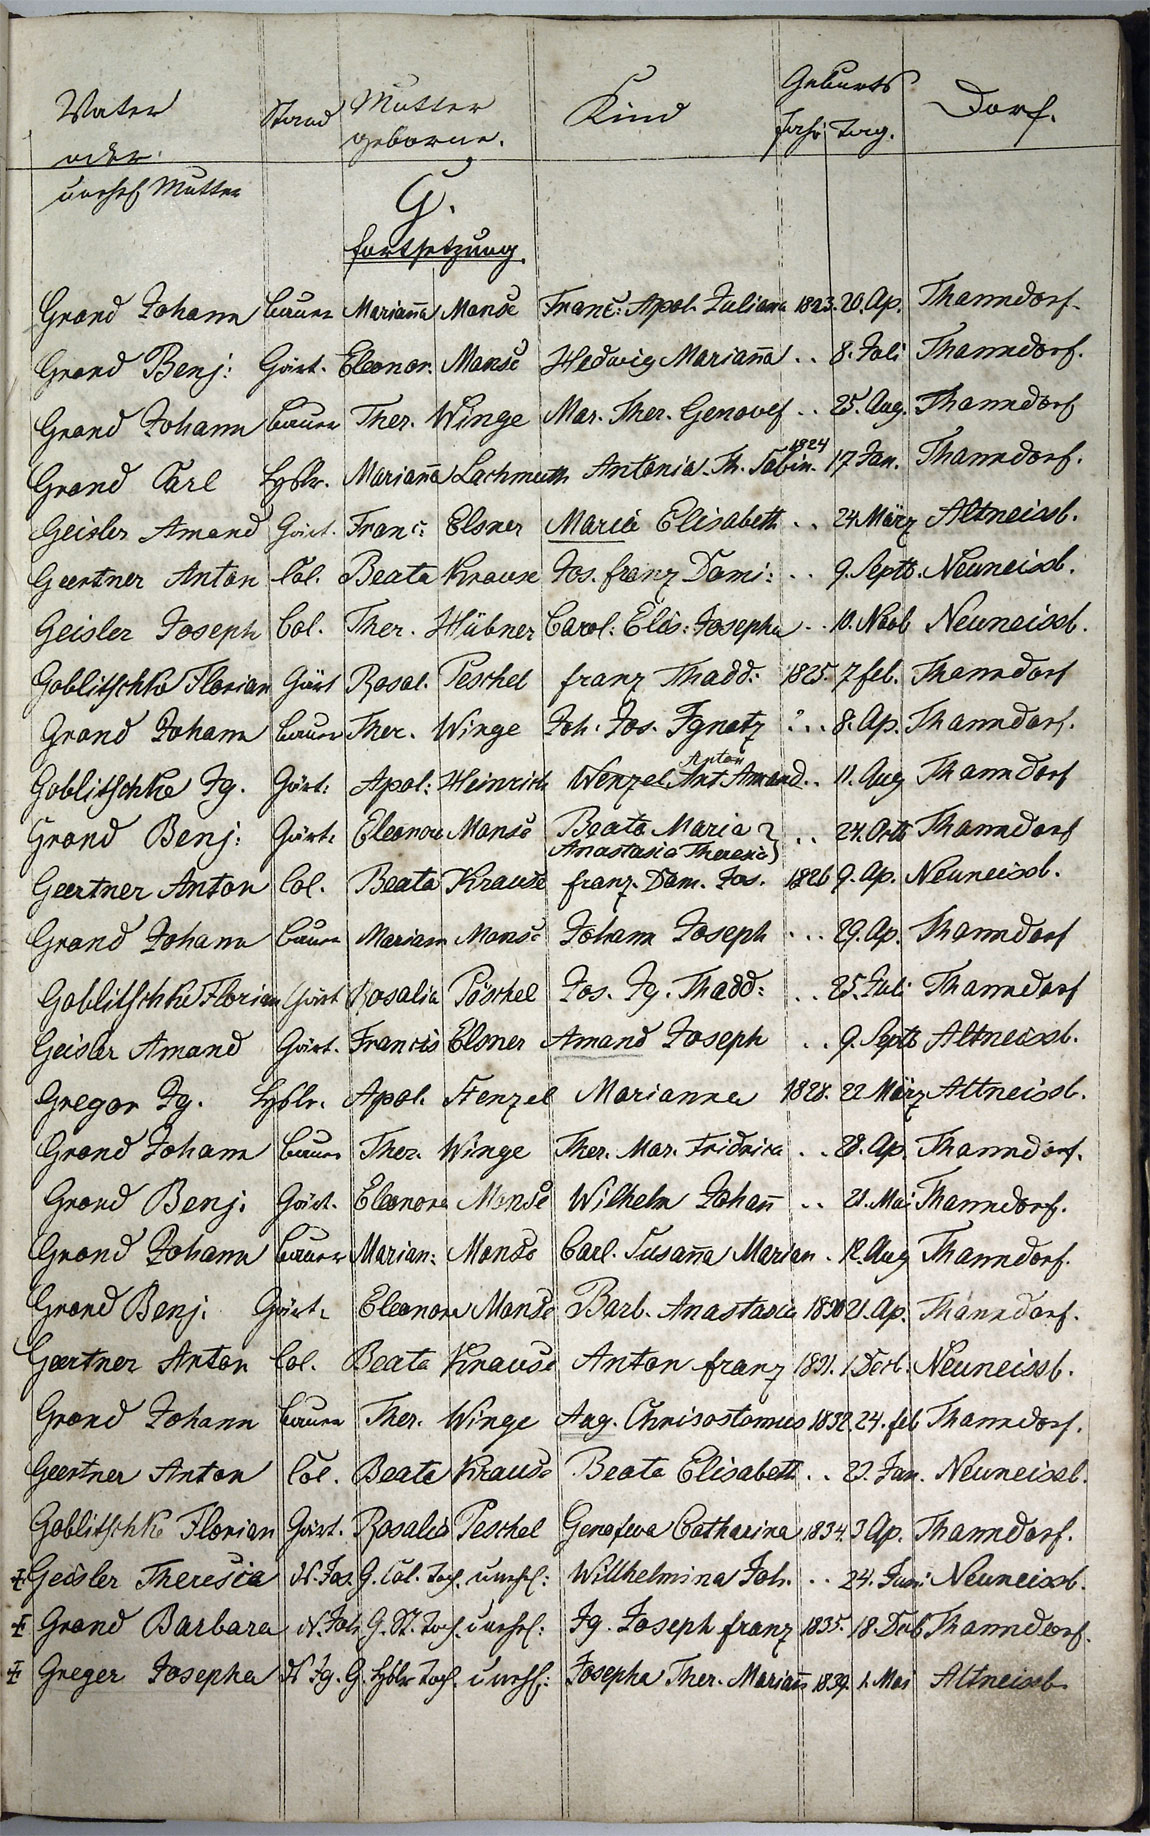 Vater Stand Mutter Kind Geburts Dorf.
oder geborne. Jahr Tag.
unehl Mutter
G.
Fortsetzung.
Grond Johann Bauer Marianna Monse Franc: Apol. Juliana 1823. 20. Ap. Thanndorf.
Grond Benj: Gärt. Eleonor. Monse Hedwig Marianna .. 8. Juli Thanndorf.
Grond Johann Bauer Ther. Winge Mar. Ther. Genovef .. 25. Aug. Thanndorf
Grond Carl Hßlr. Marianna Lachmuth Antonia. Th. Sabin. 1824 17 Jan. Thanndorf.
Geisler Amand Gärt. Franc: Elsner Maria Elisabeth .. 24. März Altneissb.
Geertner Anton Col. Beata Krause Jos. Franz Domi: .. 9. Septb. Neuneissb.
Geisler Joseph Col. Ther. Hübner Carol: Elis: Josepha .. 10. Novb Neuneissb.
Goblitschke Florian Gärt Rosal. Peschel Franz Thadd: 1825. 7 Feb. Thanndorf
Grond Johann Bauer Ther. Winge Joh. Jos. Ignatz ... 8. Ap. Thanndorf.
Goblitschke Ig. Gärt: Apol: Heinrich Wenzel Ant Anton Amand .. 11. Aug Thanndorf
Grond Benj: Gärt: Eleonora Monse Beata Maria .. 24. Octb Thanndorf
Anastasia Theresia
Geertner Anton Col. Beata Krause Franz. Dom. Jos. 1826 9. Ap. Neuneissb.
Grond Johann Bauer Mariann Monse Johann Joseph ... 29. Ap. Thanndorf
Goblitschke Florian Gärt Rosalia Pöschel Jos. Ig. Thadd: .. 25. Juli Thanndorf
Geisler Amand Gärt. Francis Elsner Amand Joseph .. 9. Septb Altneissb.
Gregor Ig. Hßlr. Apol. Stenzel Marianna 1828. 22 März Altneissb.
Grond Johann Bauer Ther. Winge Ther. Mar. Fridrika .. 28. Ap. Thanndorf.
Grond Benj. Gärt. Eleonora Monse Wilhelm Johann .. 21. Mai Thanndorf.
Grond Johann Bauer Marian: Monse Carl. Susanna Marian . 12. Aug Thanndorf.
Grond Benj. Gärt. Eleonora Monse Barb. Anastasia 1830 21. Ap. Thanndorf.
Geertner Anton Col. Beata Krause Anton Franz 1831. 1 Decb. Neuneissb.
Grond Johann Bauer Ther. Winge Aug. Chrisostomus 1832. 24. Feb Thanndorf.
Geertner Anton Col. Beata Krause Beata Elisabeth .. 23. Jan. Neuneissb.
Goblitschke Florian Gärt. Rosalia Peschel Genofeva Catharina 1834. 3 Ap. Thanndorf.
Geisler Theresia N. Jos. G. Col. Toch. unehl: Willhelmina Joh. .. 24. Juni Neuneissb.
Grond Barbara N. Joh G. St. Toch. unehl: Ig. Joseph Franz 1835. 18. Decb Thanndorf.
Greger Josepha N Ig. G. Hßlr Toch. unehl: Josepha Ther. Mariann 1839. 1. Mai Altneissb